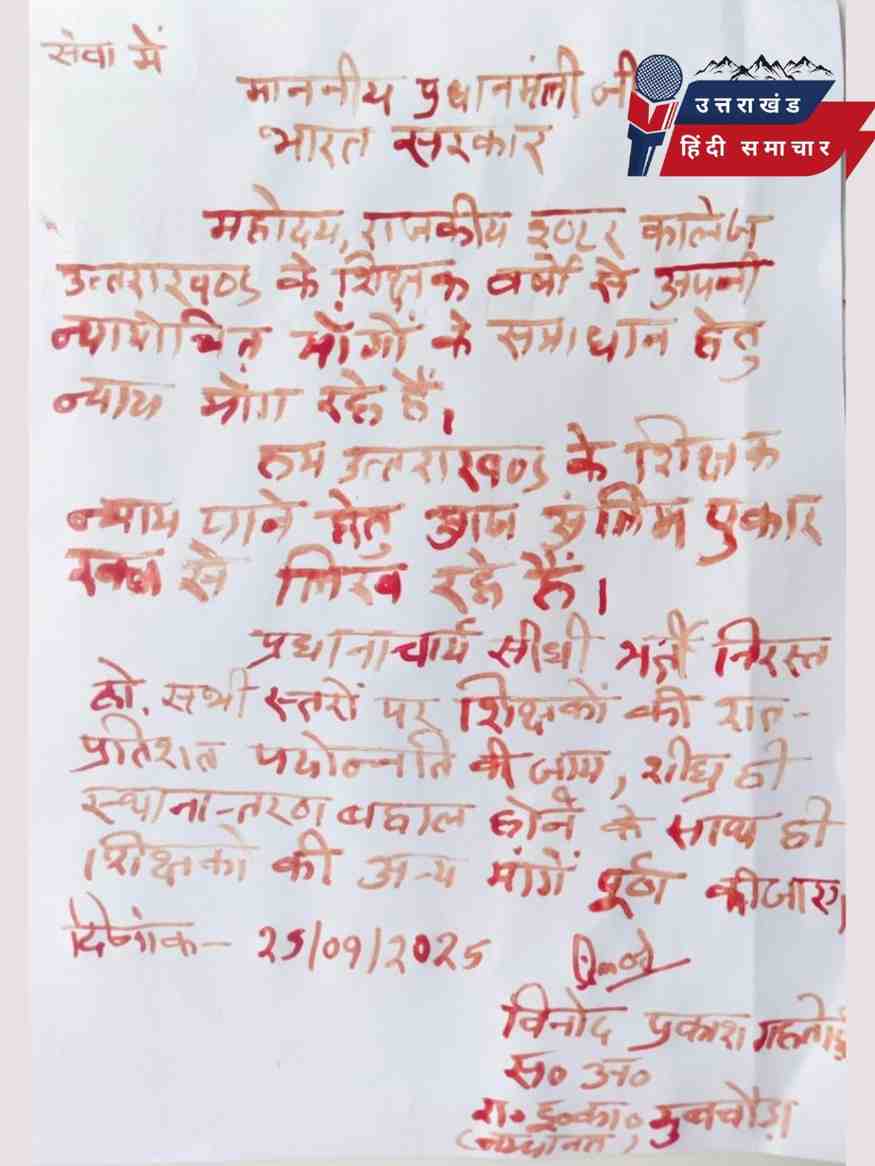 सेवा में
माननीय प्रधानमंत्री जी
भारत सरकार
उत्तराखंड
हिंदी समाचार
महोदय, राजकीय इण्टर कालेज
उत्तराखण्ड के शिक्षक वर्षों से अपनी
न्यायोचित माँगों के समाधान हेतु
न्याय माँग रहे हैं।
हम उत्तराखण्ड के शिक्षक
न्याय पाने हेतु आज अंतिम पुकार
रक्त से लिख रहे हैं।
प्रधानाचार्य सीधी भर्ती निरस्त
हो, सभी स्तरों पर शिक्षकों की शत-
प्रतिशत पदोन्नति की जाय, शीघ्र ही
स्थानान्तरण बहाल होने के साथ ही
शिक्षकों की अन्य मांगें पूर्ण की जाए।
दिनांक- 25/09/2025
विनोद प्रकाश
स० अ०
रा. इ० का०